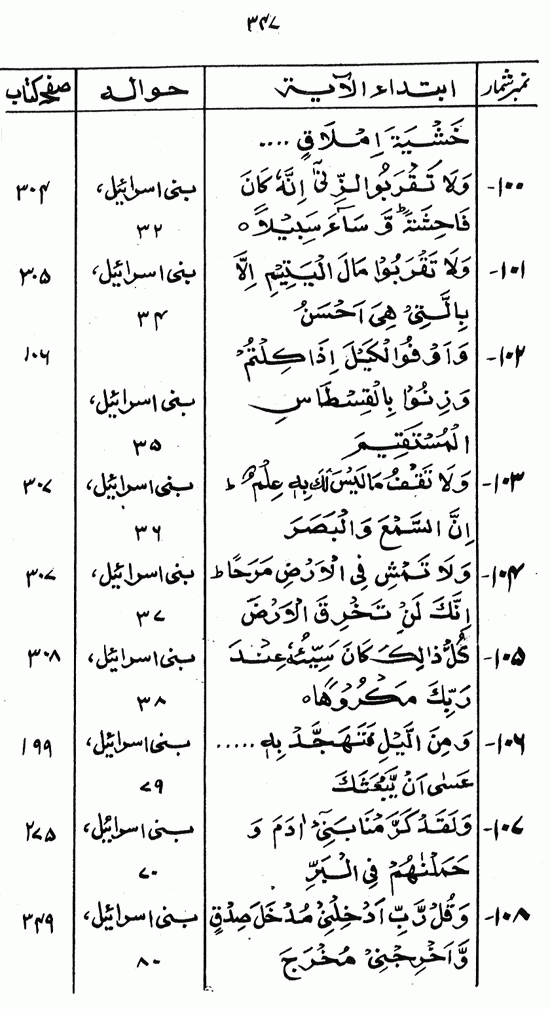 ۳۴۷
نمبر شمار ابتداء الآیة حوالہ صفحہ کتاب
خَشْيَةَ اِمْلَاقٍ ....
۱۰۰- وَلَا تَقْرَبُوا الزِّنٰۤى اِنَّهٗ كَانَ بنی اسرائیل، ۳۰۴
فَاحِشَةً ؕ وَّ سَآءَ سَبِيْلًا ○ ۳۲
۱۰۱- وَلَا تَقْرَبُوْا مَالَ الْيَتِيْمِ اِلَّا بنی اسرائیل، ۳۰۵
بِالَّتِيْ هِيَ اَحْسَنُ ۳۴
۱۰۲- وَاَوْفُوا الْكَيْلَ اِذَا كِلْتُمْ ۱۰۶
وَزِنُوْا بِالْقِسْطَاسِ بنی اسرائیل،
الْمُسْتَقِيْمَ ۳۵
۱۰۳- وَلَا تَقْفُ مَا لَيْسَ لَكَ بِهٖ عِلْمٌ ؕ بنی اسرائیل، ۳۰۷
اِنَّ السَّمْعَ وَالْبَصَرَ ۳۶
۱۰۴- وَلَا تَمْشِ فِي الْاَرْضِ مَرَحًا ؕ بنی اسرائیل، ۳۰۷
اِنَّكَ لَنْ تَخْرِقَ الْاَرْضَ ۳۷
۱۰۵- كُلُّ ذَالِكَ كَانَ سَيِّئُهٗ عِنْدَ بنی اسرائیل، ۳۰۸
رَبِّكَ مَكْرُوْهًا ○ ۳۸
۱۰۶- وَمِنَ الَّيْلِ فَتَهَجَّدْ بِهٖ ..... بنی اسرائیل، ۱۹۹
عَسٰى اَنْ يَّبْعَثَكَ ۷۹
۱۰۷- وَلَقَدْ كَرَّمْنَا بَنِيْۤ اٰدَمَ وَ بنی اسرائیل، ۲۷۵
حَمَلْنٰهُمْ فِي الْبَرِّ ۷۰
۱۰۸- وَقُلْ رَّبِّ اَدْخِلْنِيْ مُدْخَلَ صِدْقٍ بنی اسرائیل، ۳۴۹
وَّاَخْرِجْنِيْ مُخْرَجَ ۸۰